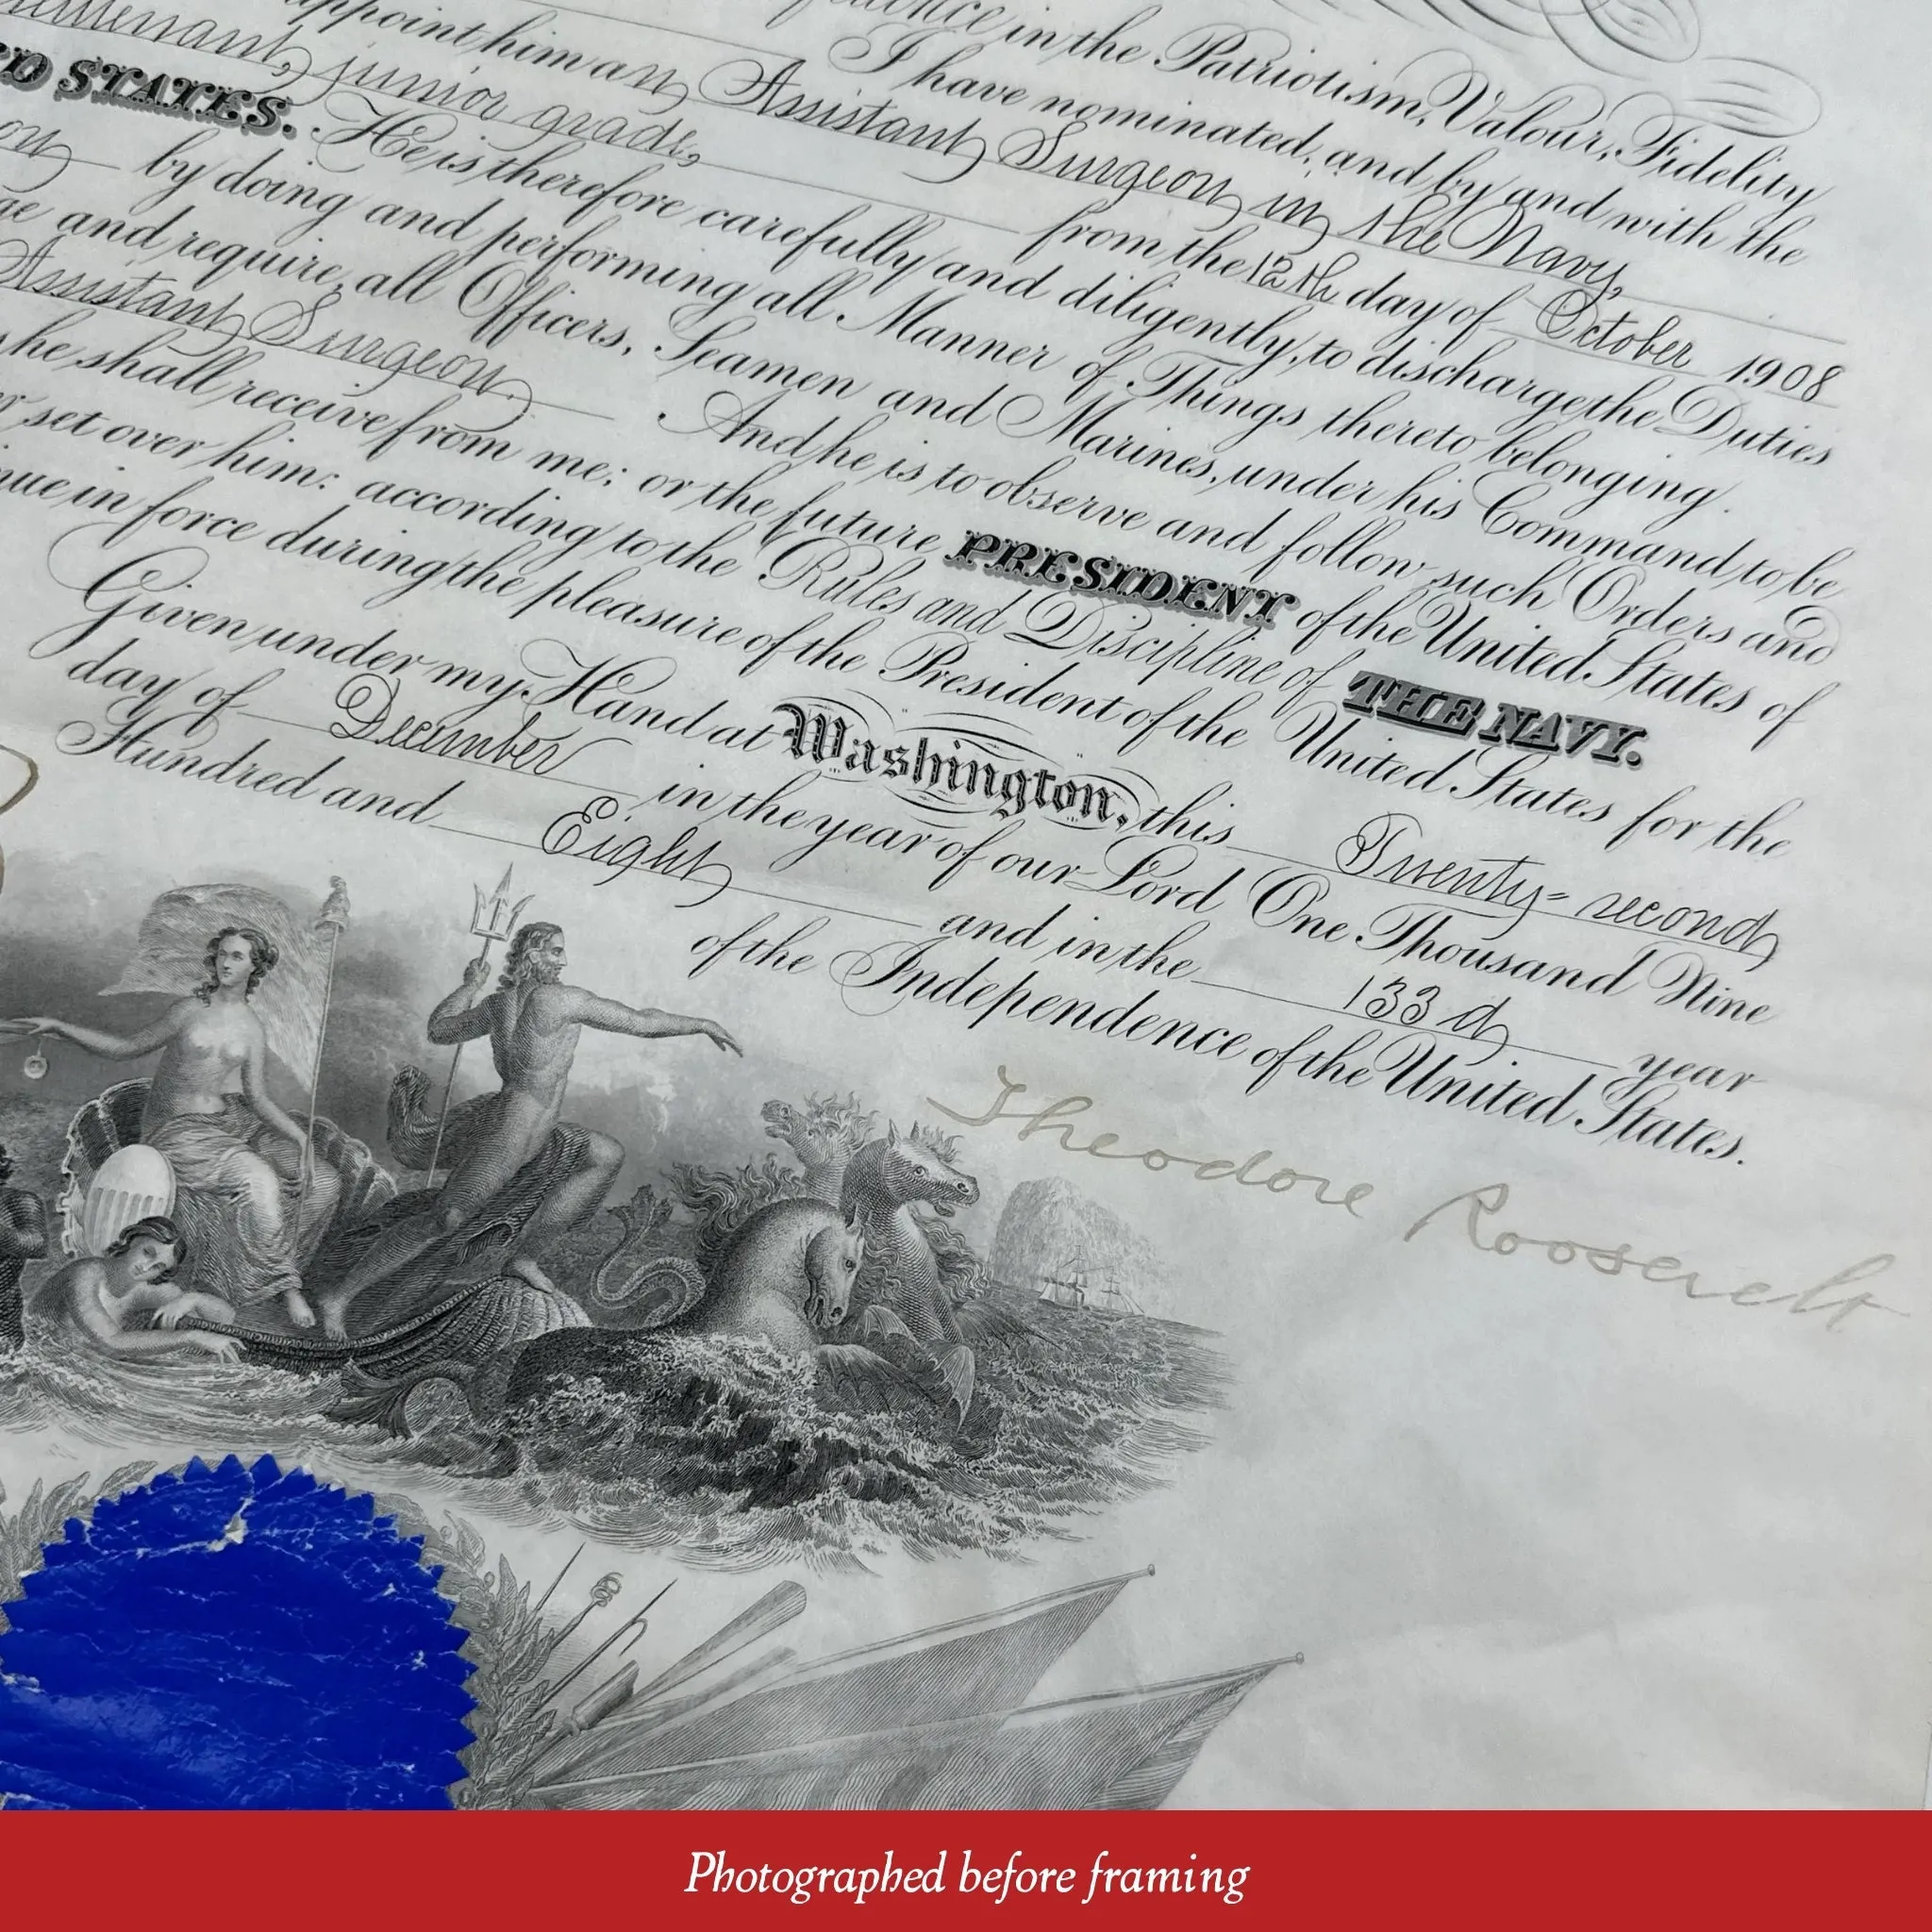 in the Patriotism, Valour, Fidelity
I have nominated, and by and with the
appoint him an Assistant Surgeon in the Navy,
junior grade, from the 12th day of October 1908
STATES. He is therefore carefully and diligently, to discharge the Duties
by doing and performing all Manner of Things thereto belonging.
and require, all Officers, Seamen and Marines, under his Command to be
Assistant Surgeon. And he is to observe and follow such Orders and
he shall receive from me; or the future PRESIDENT of the United States of
set over him: according to the Rules and Discipline of THE NAVY.
in force during the pleasure of the President of the United States for the
Given under my Hand at Washington, this Twenty-second
day of December in the year of our Lord One Thousand Nine
Hundred and Eight and in the 133d year
of the Independence of the United States.
Theodore Roosevelt
Photographed before framing